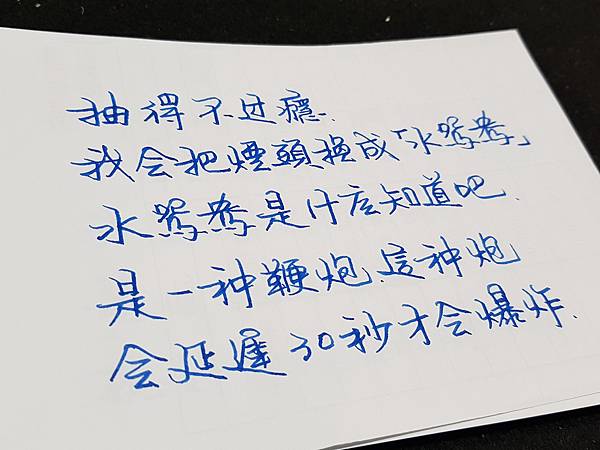 抽得不过癮.
我会把煙頭换成「水鴛鴦」
水鴛鴦是什么知道吧.
是一种鞭炮.這种炮
会延遲30秒才会爆炸.